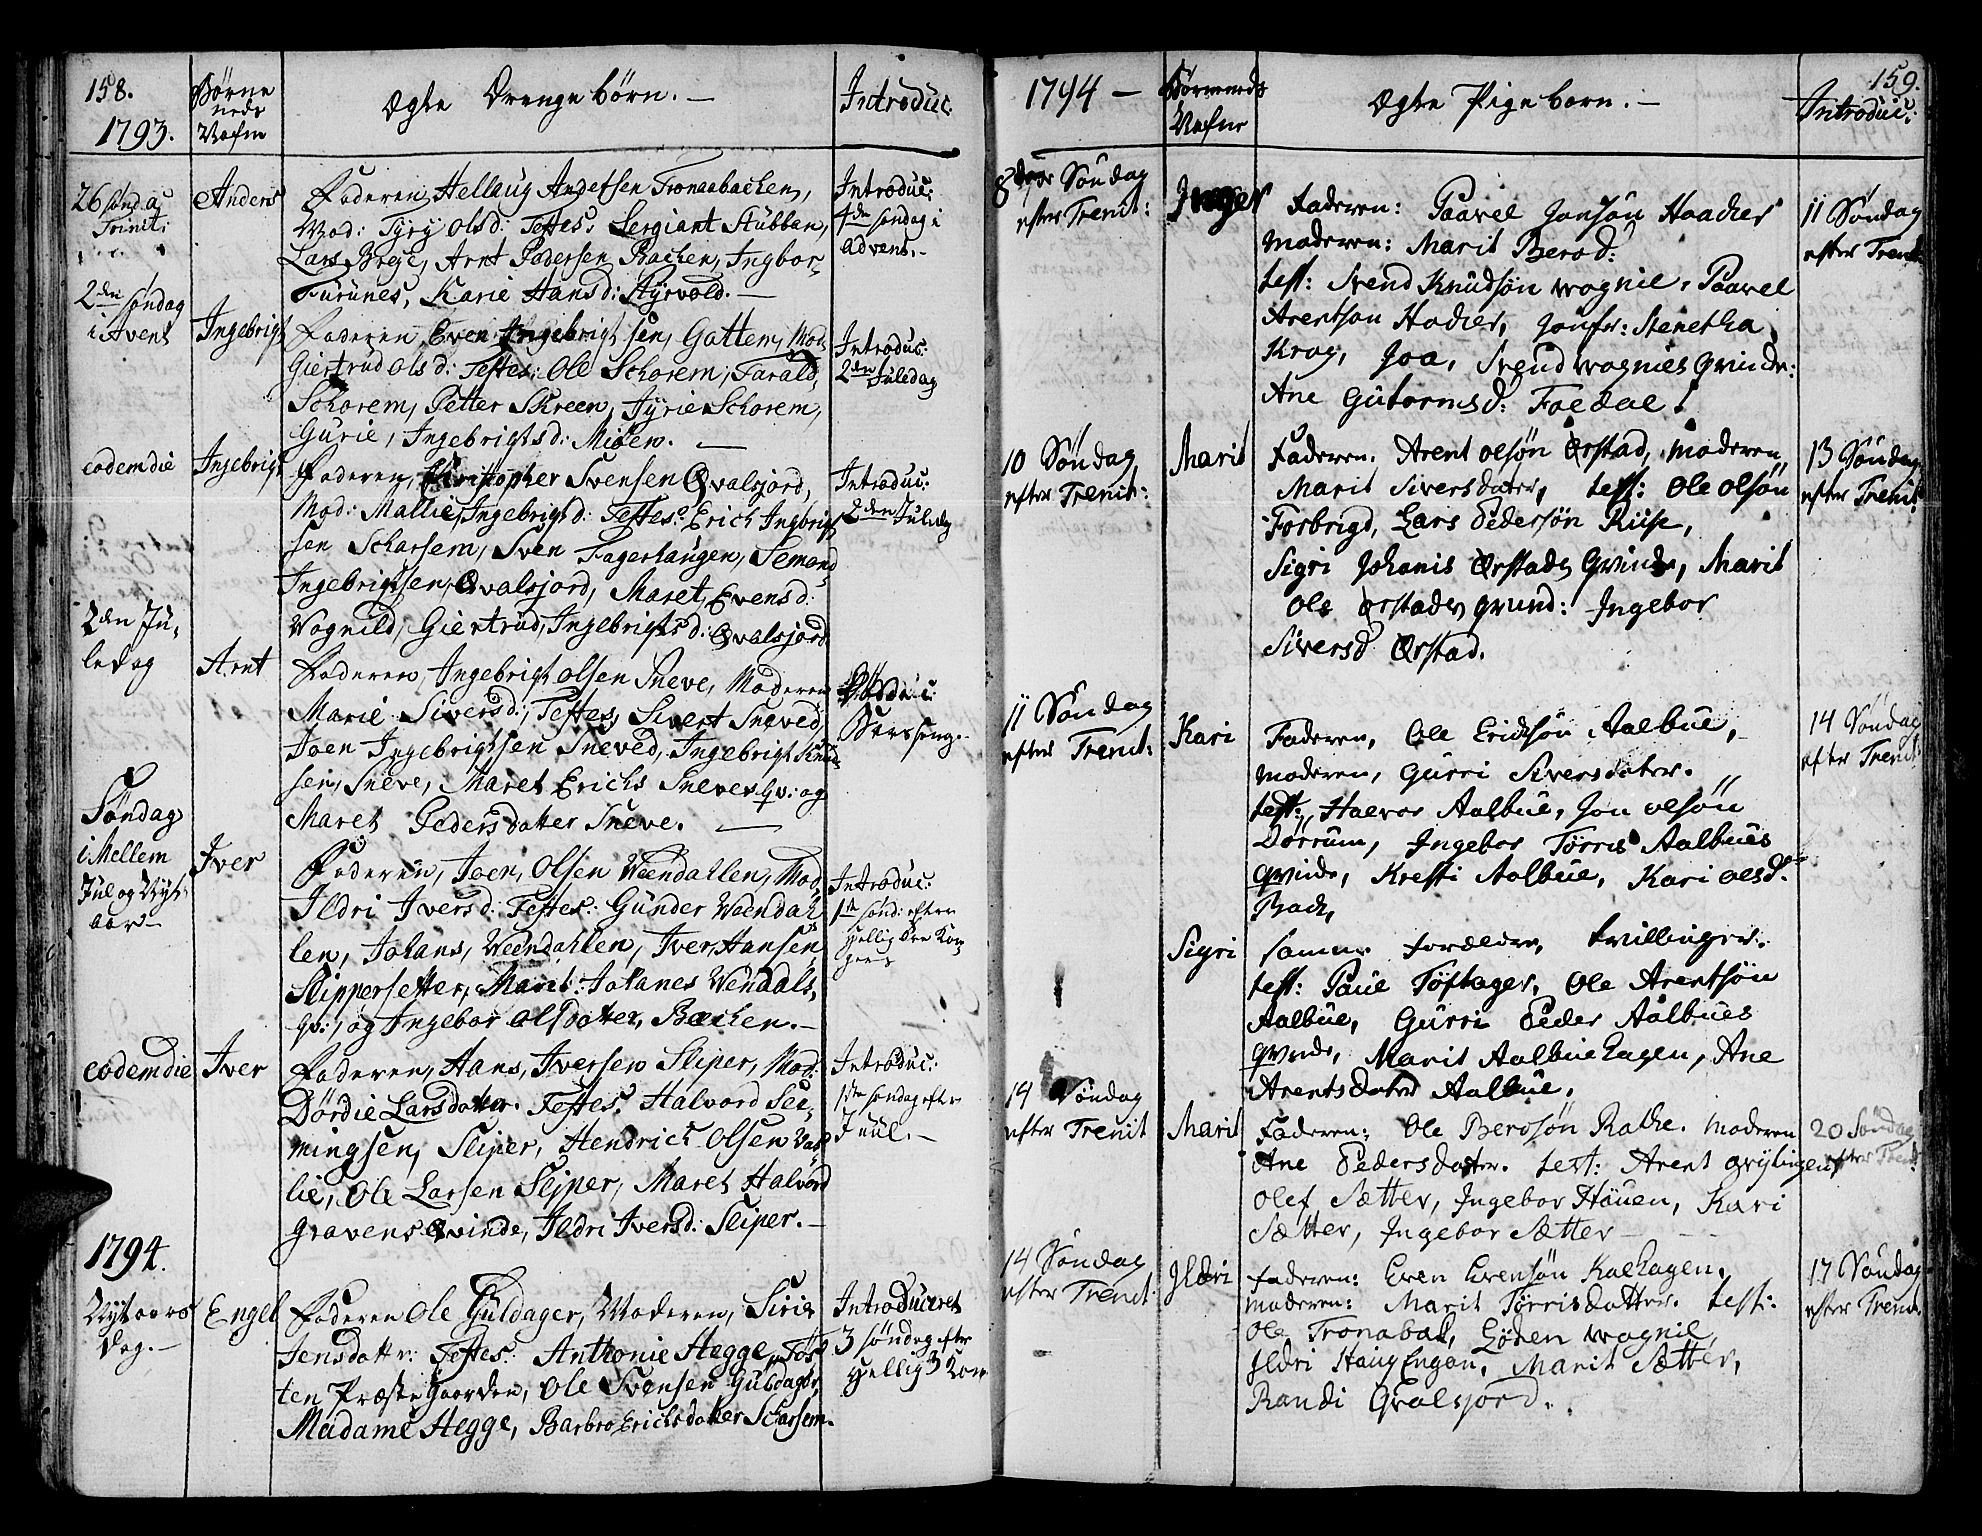 158.
1793.
Børne
neds
Nafne
Ægte Drengebörn. —
Introduc:
26 sønd. a
Trinit:
Anders
Faderen, Hellaug Andersen Tronsabachen,
Mod: Tyry Olsd: Testes: Sergiant Stübban,
Lars Arnt Pedersen Bachen, Ingbor
Furünes, Karie Hansd: Styrvold. —
Introduc:
4de søndag i
advent. —
2den søndag
i Avent
Ingebrigt
Faderen, Even Ingebrigtsen, Gottem, Mod:
Giertrud Olsd: Testes: Ole Schorem, Tarald,
Schorem, Petter Skreen, Tyrie Schorem,
Gurie, Ingebrigtsd: Mioen. —
Introduc:
2den Juledag
eodem die
Ingebrigt
Faderen, Christopher Svensen Qvalsjord,
Mod: Mallie, Ingebrigtsd: Testes: Erich Ingbrigt
sen Scharsem, Sven Fagerhaugen, Semond
Ingebrigtsen, Qvalsjord, Maret, Evensd:
Vognild, Giertrud, Ingebrigtsd: Qvalsjord
Introduc:
2den Juledag
2den Ju-
ledag
Arnt
Faderen, Ingebrigt Olsen Sneve, Moderen
Marie Siversd:, Testes, Sivert Sneved
Joen Ingebrigtsen Sneved, Ingebrigt Knud
sen, Sneve, Maret Erichs Sneves qv: og
Maret Pedersdatter Sneve. —
Død i
Barsseng. —
Søndag
i Mellem
Jul og Nyt-
aar —
Iver
Faderen, Joen, Olsen Veendahlen, Mod:
Ildri Iversd: Testes: Gunder Veendah
len, Johans, Veendahlen, Iver Hansen
Slippersetter, Marit: Johanes Vendals,
qv:, og Ingebor Olsdatter, Bachen. —
Introduc:
1te sønd: efter
Hellig Tre Kon
gers
eodem die
Iver
Faderen, Hans, Iversen Sliper, Mod:
Dördie Larsdatter. Testes: Halvord See
mingsen, Sliper, Hendrich Olsen Val
lie, Ole Larsen Sliper, Maret Halvord
gravens Qvinde, Ildri Iversd: Sliper. —
Introduc:
1te søndag efter
Juul. —
1794.
Nytaars
Dag. —
Engel
Faderen Ole Guldager, Moderen, Sirie
Jensdatter: Testes: Anthonie Hegge, Tos
ten Præstegaarden, Ole Svensen Guldager,
Madame Hegge, Barbro Erichsdatter Scharsem.
Introduceret
3 søndag efter
Hellig 3 Kon
1794 —
Børneneds
Nafne
Ægte Pigebørn. —
159.
Introduc:
8de Søndag
efter Trenit:
Inger
Faderen: Paavel Jonsøn Haacker
moderen: Marit Berod:
test: Svend Knudsøn wognil, Paavel
Arentson Hacker, Jonfr: Stenetha
Krog, Joa, Svend wognils qvinde:
Ane Gutormsd: Foedal.
11 Søndag
efter Trenit:
10 Søndag
efter Trenit:
Marit
Faderen. Arent olsøn Ørstad, moderen,
Marit Siversdater, test: Ole olsøn
Forbrigd, Lars Pedersøn Riise,
Sigri Johanis Ørstads qvinde, Marit
Ols Ørstads qvind: Ingebor
Siversd Ørstad.
13 Søndag
efter Trenit:
11 Søndag
efter Trenit:
Kari
Faderen, Ole Erichsøn Aalbue,
moderen, Gurri Siversdater.
test: Haevor Aalbue, Jon olsøn
Dørrum, Ingebor Tørris Aalbues
qvinde, Kresti Aalbue, Kari olsd:
Bach,
14 Søndag
efter Trenit:
Sigri
samme forældre, tvillinger.
test: Paul Töftager, Ole Arentsøn
Aalbue, Gurri Peder Aalbues
qvinde, Marit Aalbuehagen, Ane
Arentsdater Aalbue.
14 Søndag
efter Trenit
Marit
Faderen: Ole Berosøn Rathe. moderen
Ane Pedersdater. test: Arent grytingen
Olef Sætter, Ingebor Häuen, Kari
Sætter, Ingebor Sætter —
20 Søndag
efter Trenit:
14 Søndag
efter Trenit
Ildri
Faderen: Even Evensøn Kaehagen,
moderen: Marit Tørrisdatter. test:
Ole Tronabak, Gøden wognil,
Ildri HaugEngan, Marit Sætter,
Randi Qvalsjord.
17 Søndag
efter Trenit: